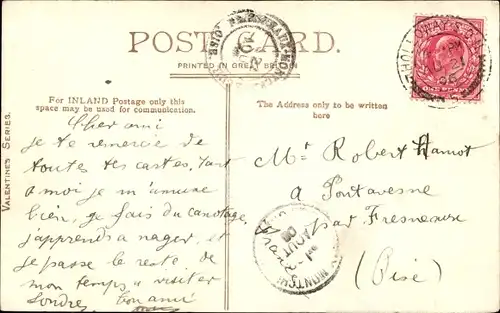 POST CARD.
PRINTED IN GREAT BRITAIN
For INLAND Postage only this
space may be used for communication.
The Address only to be written
here
VALENTINE'S SERIES.
Cher ami
je te remercie de
toutes tes cartes, tant
a moi je m'amuse
bien, je fais du canotage,
j'apprends a nager, et
je passe le reste de
mon temps a visiter
Londres. ton ami
Mr Robert Hamot
a
par
(Oise)
ONE PENNY
HOLLOWAY
AOUT
06